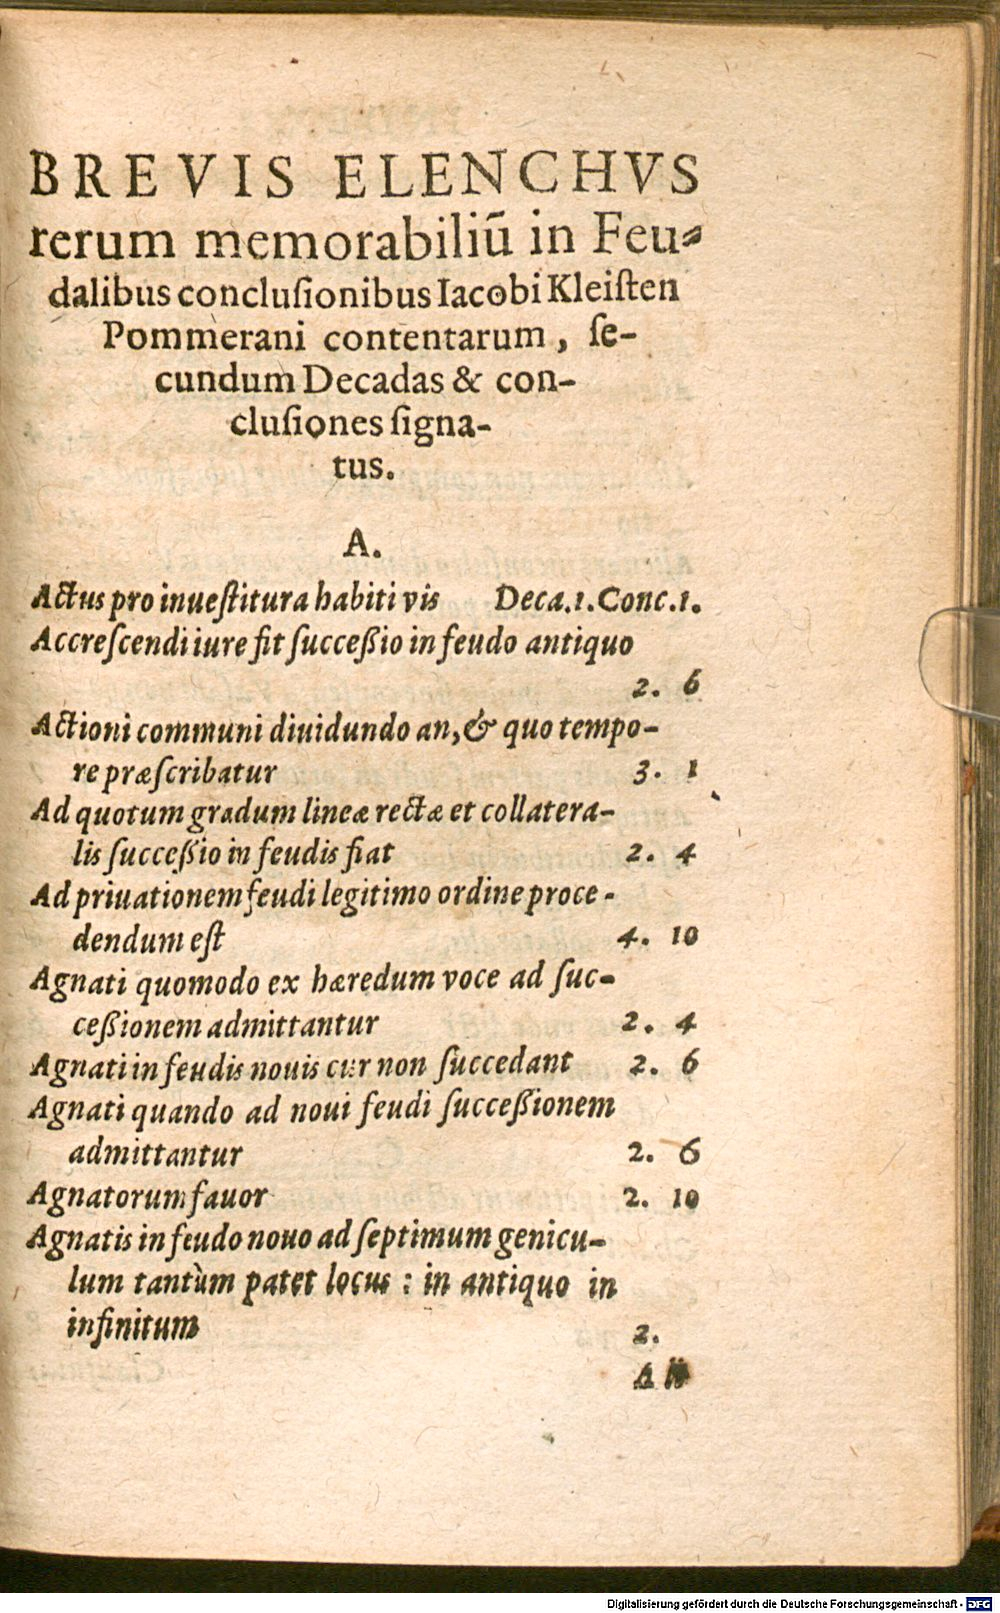 BREVIS ELENCHVS
rerum memorabiliū in Feu-
dalibus conclusionibus Iacobi Kleisten
Pommerani contentarum, se-
cundum Decadas & con-
clusiones signa-
tus.
A.
Actus pro inuestitura habiti vis Deca.1.Conc.1.
Accrescendi iure fit successio in feudo antiquo
2. 6
Actioni communi diuidundo an, & quo tempo-
re præscribatur 3. 1
Ad quotum gradum lineæ rectæ et collatera-
lis successio in feudis fiat 2. 4
Ad priuationem feudi legitimo ordine proce-
dendum est 4. 10
Agnati quomodo ex hæredum voce ad suc-
cessionem admittantur 2. 4
Agnati in feudis nouis cur non succedant 2. 6
Agnati quando ad noui feudi successionem
admittantur 2. 6
Agnatorum fauor 2. 10
Agnatis in feudo nouo ad septimum genicu-
lum tantùm patet locus : in antiquo in
infinitum 2.
A
Digitalisierung gefördert durch die Deutsche Forschungsgemeinschaft - DFG